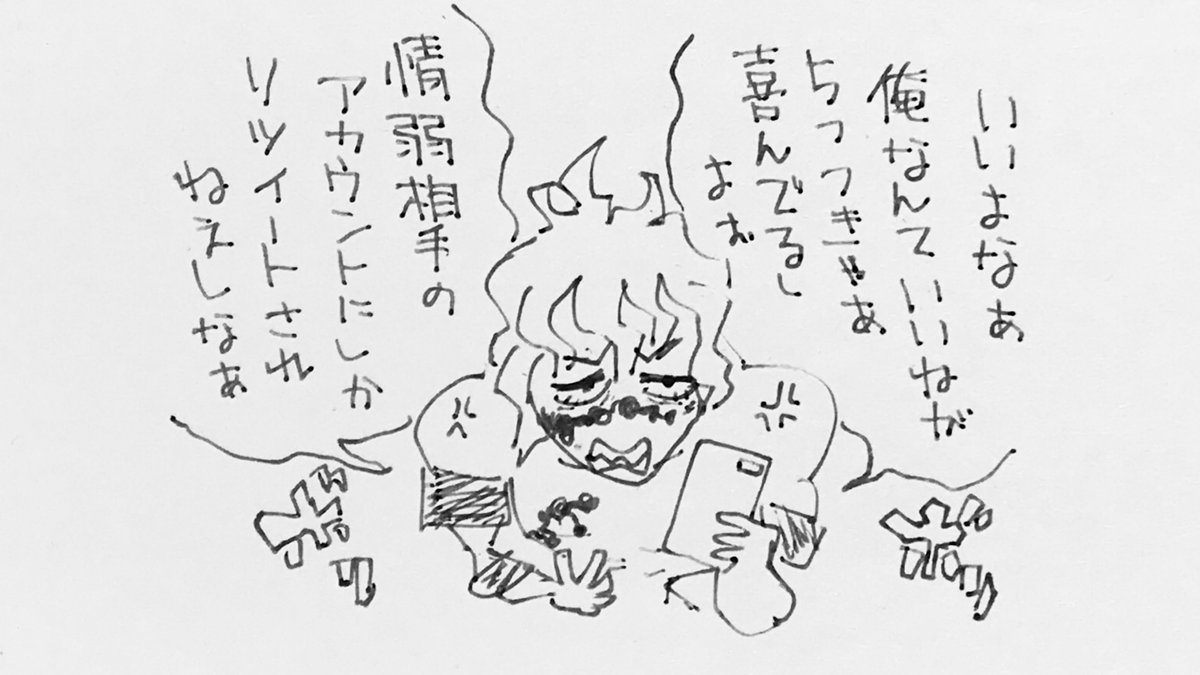 いいよなぁ
俺なんていいねが
5つつきゃあ
喜んでるし
よぉ
情弱相手の
アカウントにしか
リツイートされ
ねぇしなぁ
ギリ
ギリ